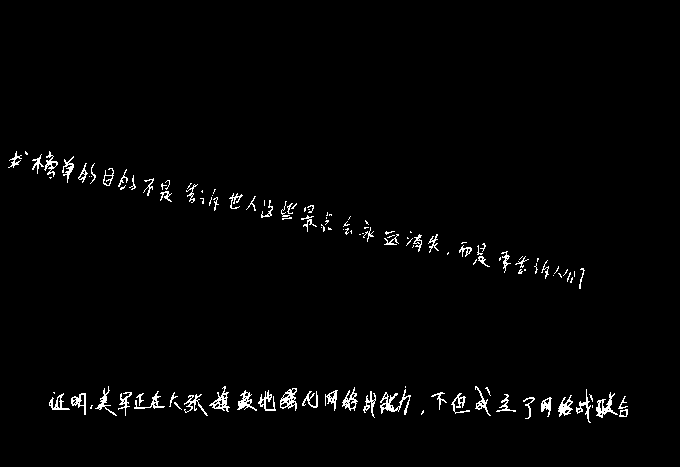 求榜单的目的不是告诉世人这些景点会永远消失,而是要告诉人们
证明,美军正在大张旗鼓地强化网络战能力,不但成立了网络战联合